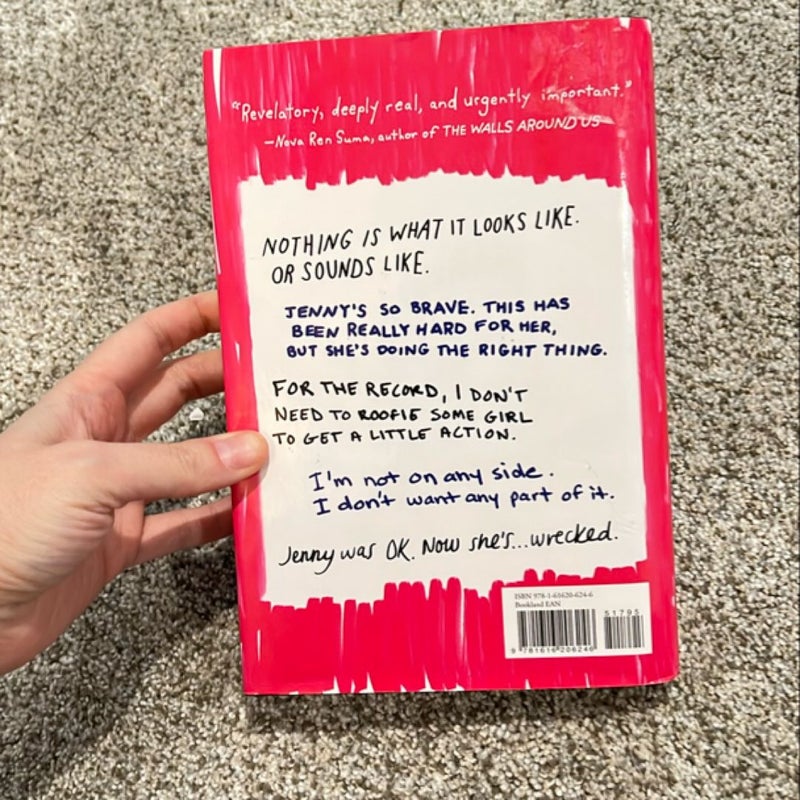 "Revelatory, deeply real, and urgently important."
—Nova Ren Suma, author of THE WALLS AROUND US
NOTHING IS WHAT IT LOOKS LIKE.
OR SOUNDS LIKE.
JENNY'S SO BRAVE. THIS HAS
BEEN REALLY HARD FOR HER,
BUT SHE'S DOING THE RIGHT THING.
FOR THE RECORD, I DON'T
NEED TO ROOFIE SOME GIRL
TO GET A LITTLE ACTION.
I'm not on any side.
I don't want any part of it.
Jenny was OK. Now she's...wrecked.
ISBN 978-1-61620-624-6
Bookland EAN
51795
9 781616 206246